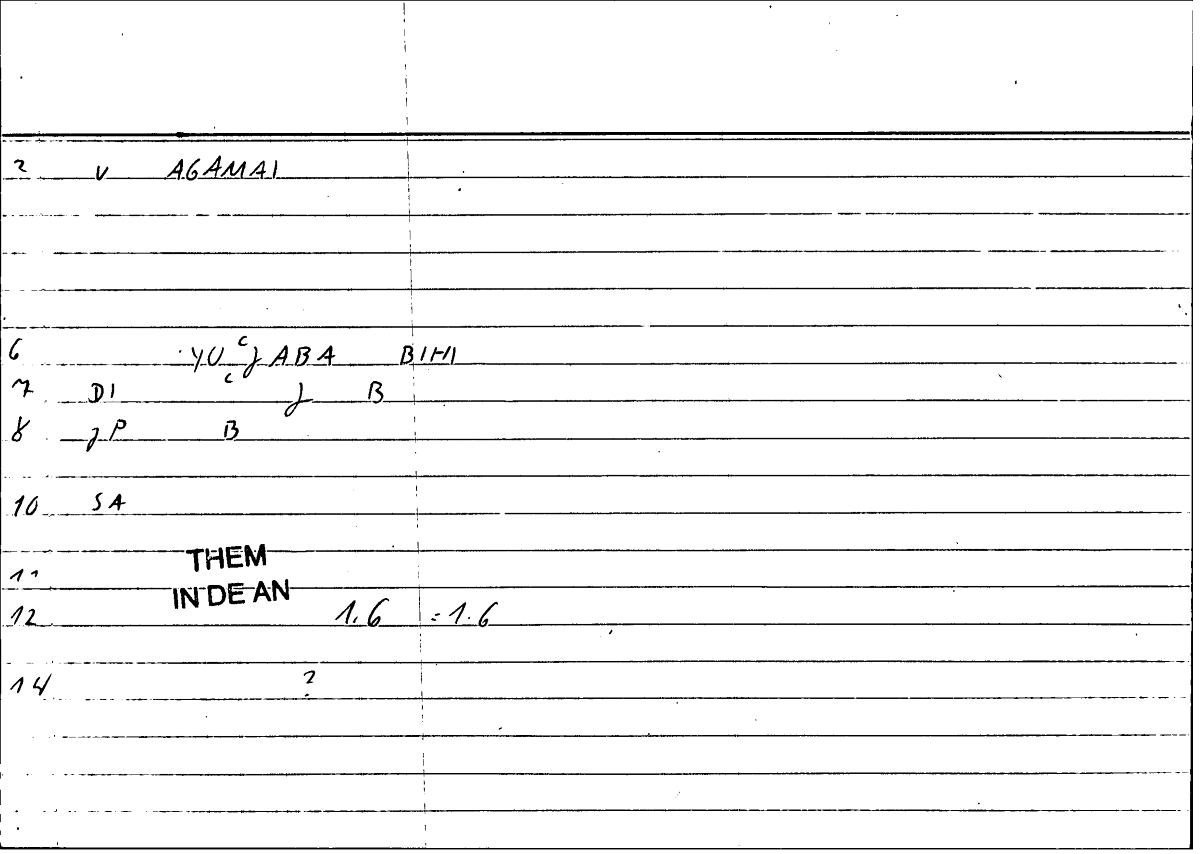 2 v AGAMAI
6 YUʿJABA BIHI
7 DI ʿ J B
8 JP B
10 SA
THEM
11
IN DE AN
12 1.6 = 1.6
14 ?